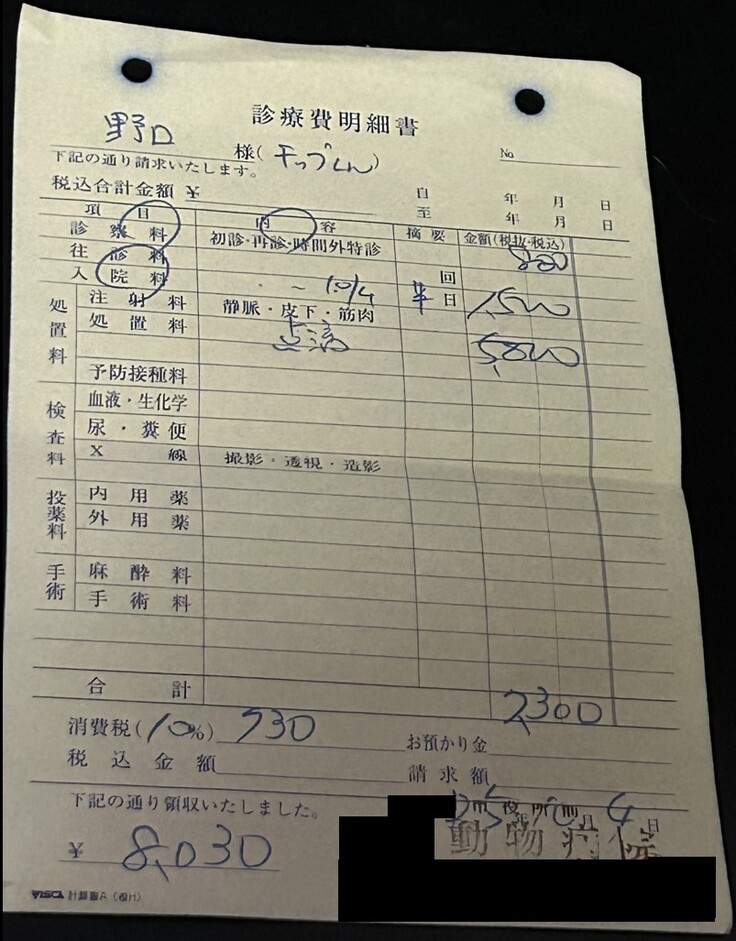 診療費明細書
野口 様(チップくん) No
下記の通り請求いたします。
税込合計金額 ¥ 自 年 月 日
至 年 月 日
項 目 内 容 摘 要 金額(税抜・税込)
診 察 料 初診・再診・時間外特診 800
往 診 料 回
入 院 料 ~ 10/4 半 日 1,500
処置料 注 射 料 静脈・皮下・筋肉
処 置 料 点滴 5,000
予防接種料
検査料 血液・生化学
尿・糞便
X 線 撮影・透視・造影
投薬料 内 用 薬
外 用 薬
手術 麻 酔 料
手 術 料
合 計 7,300
消費税(10%) 730 お預かり金
税 込 金 額 請 求 額
下記の通り領収いたしました。
4日
¥ 8,030 動物病院
計算書A